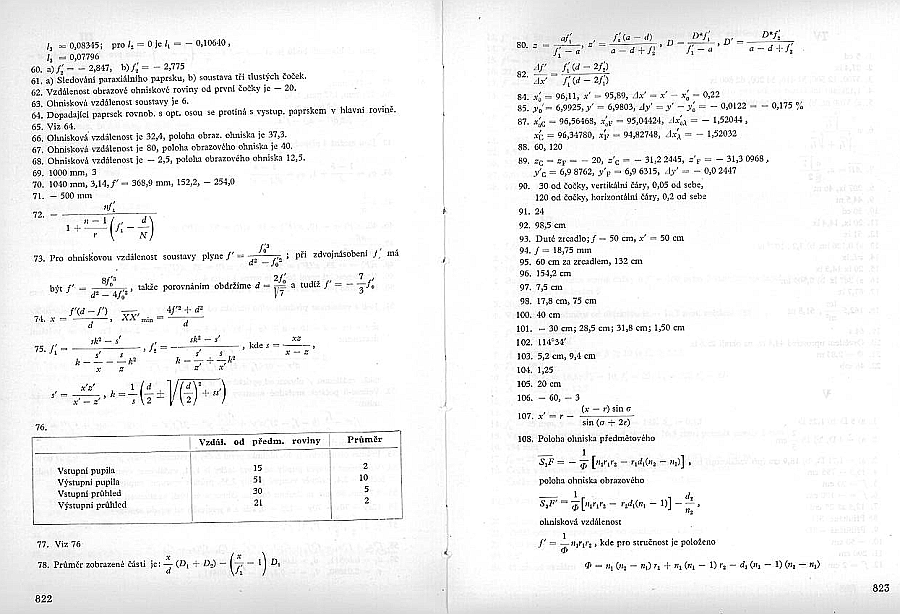 l₃ = 0,08345; pro l₂ = 0 je l₁ = − 0,10640,
l₃ = 0,07796
60. a) f′₂ = − 2,847, b) f′₂ = − 2,775
61. a) Sledování paraxiálního paprsku, b) soustava tří tlustých čoček.
62. Vzdálenost obrazové ohniskové roviny od první čočky je − 20.
63. Ohnisková vzdálenost soustavy je 6.
64. Dopadající paprsek rovnob. s opt. osou se protíná s vystup. paprskem v hlavní rovině.
65. Viz 64.
66. Ohnisková vzdálenost je 32,4, poloha obraz. ohniska je 37,3.
67. Ohnisková vzdálenost je 80, poloha obrazového ohniska je 40.
68. Ohnisková vzdálenost je − 2,5, poloha obrazového ohniska 12,5.
69. 1000 mm, 3
70. 1040 mm, 3,14, f′ = 368,9 mm, 152,2, − 254,0
71. − 500 mm
72. − nf′₁ / (1 + (n − 1)/r (f′₁ − d/N))
73. Pro ohniskovou vzdálenost soustavy plyne f′ = f′ₒ³ / (d² − f′ₒ²) ; při zdvojnásobení f′ₒ má
být f′ = 8f′ₒ³ / (d² − 4f′ₒ²), takže porovnáním obdržíme d = 2f′ₒ / √7 a tudíž f′ = − 7/3 f′ₒ
74. x = f′(d − f′) / d, XX′ₘᵢₙ = (4f′² + d²) / d
75. f′₁ = (sk² − s′) / (k − s′/x − s/z k²), f′₂ = (sk² − s′) / (k − s′/z′ + s/x′ k²), kde s = xz / (x − z),
s′ = x′z′ / (x′ − z′), k = 1/s (d/2 ± √((d/2)² + ss′))
76.
Vzdál. od předm. roviny Průměr
Vstupní pupila 15 2
Výstupní pupila 51 10
Vstupní průhled 30 5
Výstupní průhled 21 2
77. Viz 76
78. Průměr zobrazené části je: x/d (D₁ + D₂) − (x/f′₁ − 1) D₁
822
80. z = af′₁ / (f′₁ − a), z′ = f′₂(a − d) / (a − d + f′₂), D = D*f′₁ / (f′₁ − a), D′ = D*f′₂ / (a − d + f′₂)
82. Δf′ / Δx′ = f′₁(d − 2f′₂) / f′₂(d − 2f′₁)
84. x′₀ = 96,11, x′ = 95,89, Δx′ = x′ − x′₀ = − 0,22
85. y₀′ = 6,9925, y′ = 6,9803, Δy′ = y′ − y′₀ = − 0,0122 = − 0,175 %
87. x′₀C = 96,56468, x′₀F = 95,04424, Δx′₀λ = − 1,52044,
x′C = 96,34780, x′F = 94,82748, Δx′λ = − 1,52032
88. 60, 120
89. zC = zF = − 20, z′C = − 31,2 2445, z′F = − 31,3 0968,
y′C = 6,9 8762, y′F = 6,9 6315, Δy′ = − 0,0 2447
90. 30 od čočky, vertikální čáry, 0,05 od sebe,
120 od čočky, horizontální čáry, 0,2 od sebe
91. 24
92. 98,5 cm
93. Duté zrcadlo; f = 50 cm, x′ = 50 cm
94. f = 18,75 mm
95. 60 cm za zrcadlem, 132 cm
96. 154,2 cm
97. 7,5 cm
98. 17,8 cm, 75 cm
100. 40 cm
101. − 30 cm; 28,5 cm; 31,8 cm; 1,50 cm
102. 114°34′
103. 5,2 cm, 9,4 cm
104. 1,25
105. 20 cm
106. − 60, − 3
107. x′ = r − (x − r) sin σ / sin (σ + 2ε)
108. Poloha ohniska předmětového
S₁F = − 1/Φ [n₂r₁r₂ − r₁d₁(n₂ − n₁)],
poloha ohniska obrazového
S₂F′ = 1/Φ [n₁r₁r₂ − r₂d₁(n₁ − 1)] − d₂/n₂,
ohnisková vzdálenost
f′ = 1/Φ n₁r₁r₂, kde pro stručnost je položeno
Φ = n₁ (n₂ − n₁) r₁ + n₁ (n₁ − 1) r₂ − d₁ (n₁ − 1) (n₂ − n₁)
823